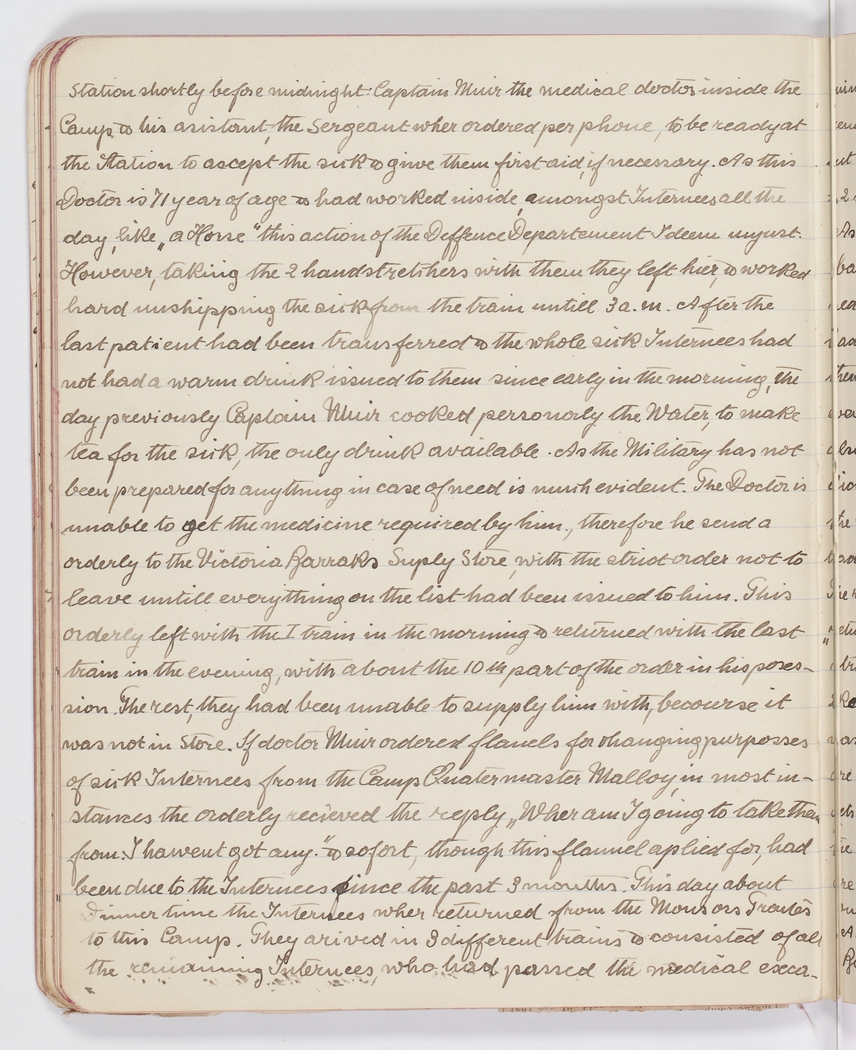 Station shortly before midnight. Captain Muir the medical doctor inside the
Camp & his asistant, the Sergeant wher ordered per phone, to be ready at
the Station to ascept the sick & give them first aid, if necessary. As this
Doctor is 71 year of age & had worked inside, amongst Internees all the
day, like „a Horse" this action of the Deffence Departement I deem unjust.
However, taking the 2 handstretchers with them they left hier, & worked
hard unshipping the sick from the train untill 3 a.m. After the
last patient had been transferred & the whole sick Internees had
not had a warm drink issued to them since early in the morning, the
day previously Captain Muir cooked personaly the Water, to make
tea for the sick, the only drink available. As the Military has not
been prepared for anything in case of need is much evident. The Doctor is
unable to get the medicine required by him, therefore he send a
orderly to the Victoria Barraks Suply Store, with the strict order not to
leave untill everything on the list had been issued to him. This
orderly left with the I train in the morning & returned with the last
train in the evening, with about the 10th part of the order in his poses-
sion. The rest, they had been unable to supply him with, becourse it
was not in Store. If doctor Muir ordered flanels for changing purposses
of sick Internees from the Camp Quatermaster Malloy, in most in-
stances the orderly recieved the reply „Wher am I going to take them
from: I hawent got any." & sofort, though this flannel aplied for, had
been due to the Internees since the past 3 months. This day about
Dinner time the Internees wher returned from the Monsors
to this Camp. They arived in 3 different trains & consisted of all
the remaining Internees, who had passed the medical exca-